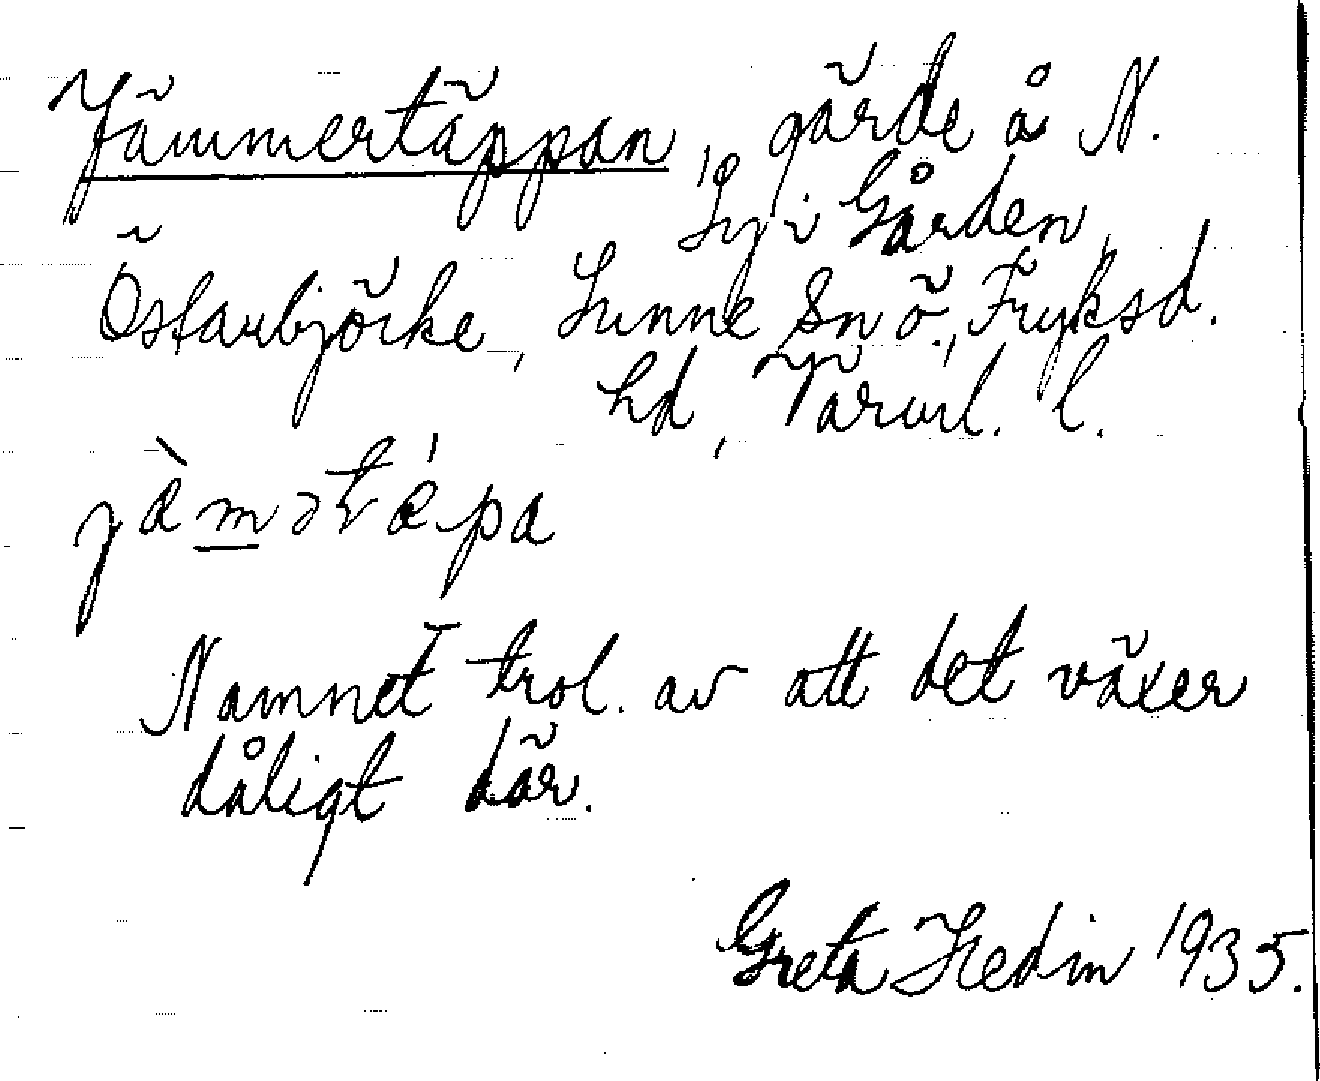 Jämmertäppan, gärde å N.
Ly i Gården,
Östanbjörke, Sunne Sn ö., Fryksd.
hd, Värml. l.
jæ̀mətǽpa
Namnet trol. av att det växer
dåligt där.
Greta Hedin 1935.